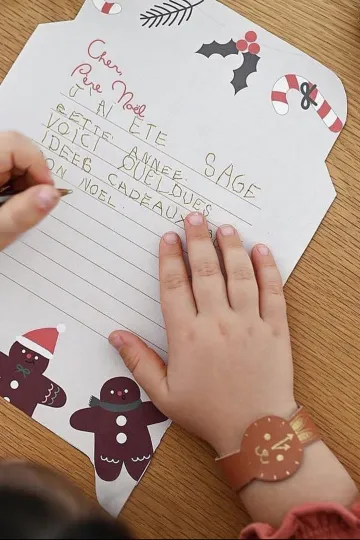 Cher,
Père Noël
J'AI ÉTÉ SAGE
CETTE ANNÉE.
VOICI QUELQUES
IDEES CADEAUX
ON NOEL.